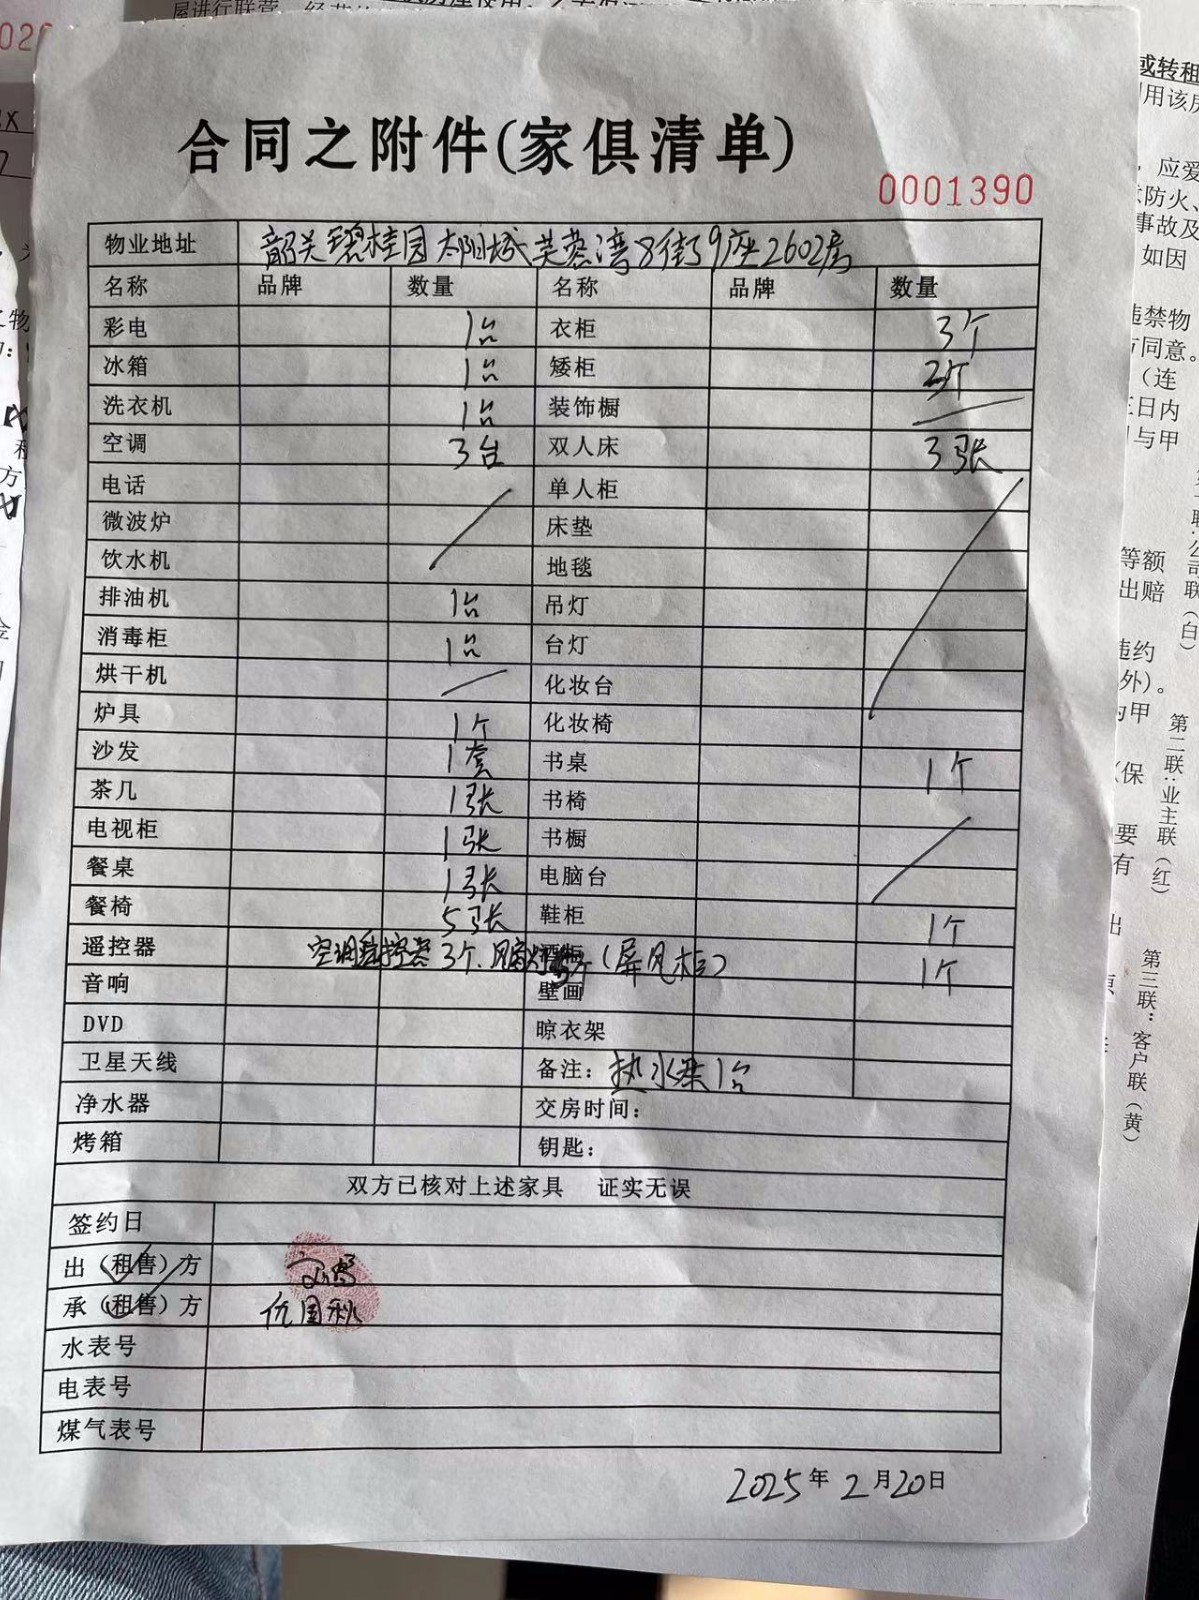 合同之附件(家俱清单)
0001390
物业地址 韶关碧桂园太阳城芙蓉湾8街9座2602房
名称 品牌 数量 名称 品牌 数量
彩电 1台 衣柜 3个
冰箱 1台 矮柜 2个
洗衣机 1台 装饰橱
空调 3台 双人床 3张
电话 单人柜
微波炉 床垫
饮水机 地毯
排油机 1台 吊灯
消毒柜 1台 台灯
烘干机 化妆台
炉具 1个 化妆椅
沙发 1套 书桌 1个
茶几 1张 书椅
电视柜 1张 书橱
餐桌 1张 电脑台
餐椅 5张 鞋柜 1个
遥控器 空调遥控器3个、 (屏风柜) 1个
音响 壁画
DVD 晾衣架
卫星天线 备注: 热水器1台
净水器 交房时间:
烤箱 钥匙:
双方已核对上述家具 证实无误
签约日
出(租售)方
承(租售)方
水表号
电表号
煤气表号
2025年2月20日
屋进行联营
或转租
用该房
应爱
防火、
事故及
如因
违禁物
方同意。
(连
三日内
与甲
等额
出赔
违约
外)。
为甲
(保
要
有
出
第二联:业主联(红)
第三联:客户联(黄)